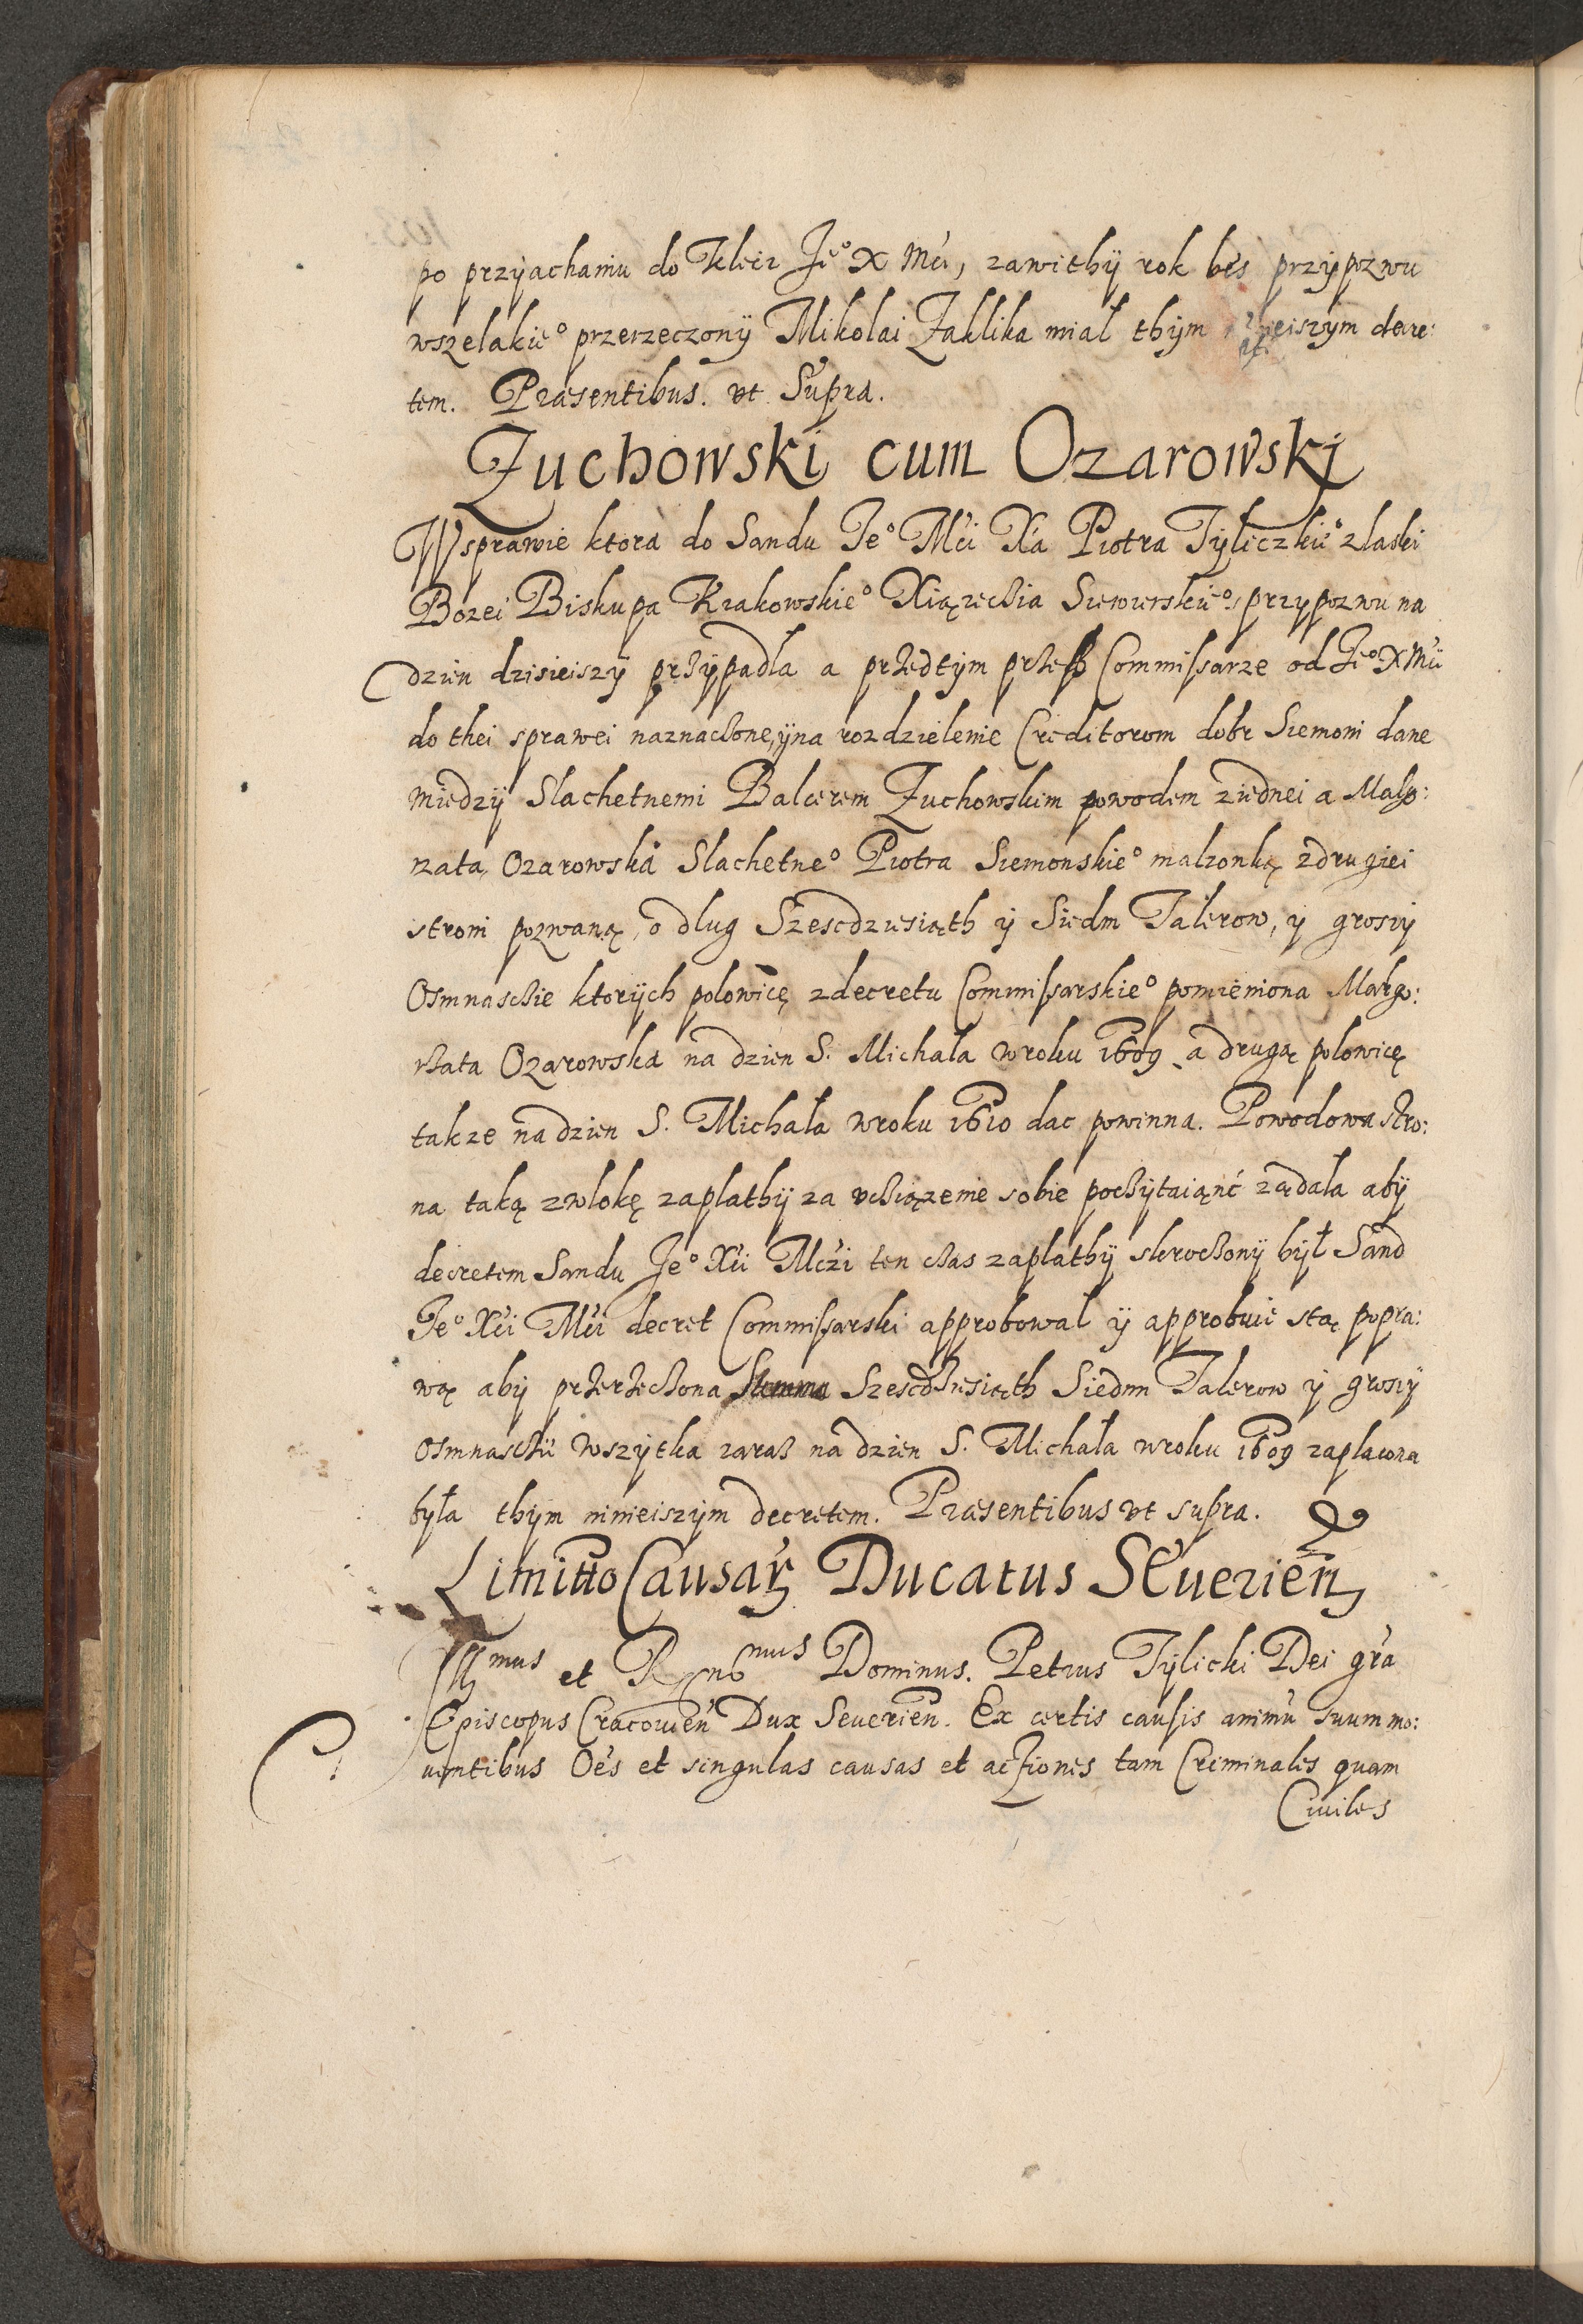 po przyiachaniu do Kielcz Je° X Mci, zawithÿ rok bes przÿpozwu
wszelakie° przerzeczonÿ Mikolai Zaklika mial thÿm ninieiszym decre:
tem. Præsentibus. vt Supra.
Zuchowski cum Ozarowski
W sprawie ktora do Sandu Je° Mci Xa Piotra Tÿliczkie° z laski
Bozei Biskupa Krakowskie° Xiązęcßia Siewierskie°, przypozwu na
dzien dzisieiszÿ przÿpadla a przedtÿm przeß Commissarze od Je° X Mci
do thei sprawei naznacßone, ÿ na rozdzielenie Creditorom dobr Siemoni dane
miedzÿ Slachetnemi Balcerem Zuchowskim powodem ziednei a Malgo:
rzatą Ozarowską Slachetne° Piotra Siemonskie° malzonką zdrugiei
stroni pozwaną, o dlug Szescdziesiąth ÿ Siedm Talerow, ÿ grosÿ
Osmnascßie ktorÿch polowicę zdecretu Commissarskie° pomieniona Margo:
rßata Ozarowska na dzien S. Michala w roku 1609. a drugą polowicę
takze na dzien S. Michala w roku 1610 dac powinna. Powodowa stro:
na taką zwlokę zaplathÿ za vcßiązenie sobie pocßÿtaiąnc ządala abÿ
decretem Sandu Je° Xci Mczi ten cßas zaplathÿ skrocßonÿ bÿł Sand
Je° Xci Mci decret Commissarski approbowal ÿ approbuie s tą popra:
wą abÿ przerzecßona Summa Szescdziesiąth Siedm Talerow ÿ grosÿ
osmnascßie wszÿtka zaraß na dzien S. Michala w roku 1609 zaplacona
była thÿm ninieiszÿm decretem. Præsentibus vt supra.
Limitto Causarꝝ Ducatus Seuerien̄
Illmus et Rꝫndmus Dominus. Petrus Tÿlicki Dei gra
Episcopus Cracouien Dux Seuerien. Ex certis causis animu suum mo:
uentibus Oēs et singulas causas et actiones tam Criminales quam
Ciuiles